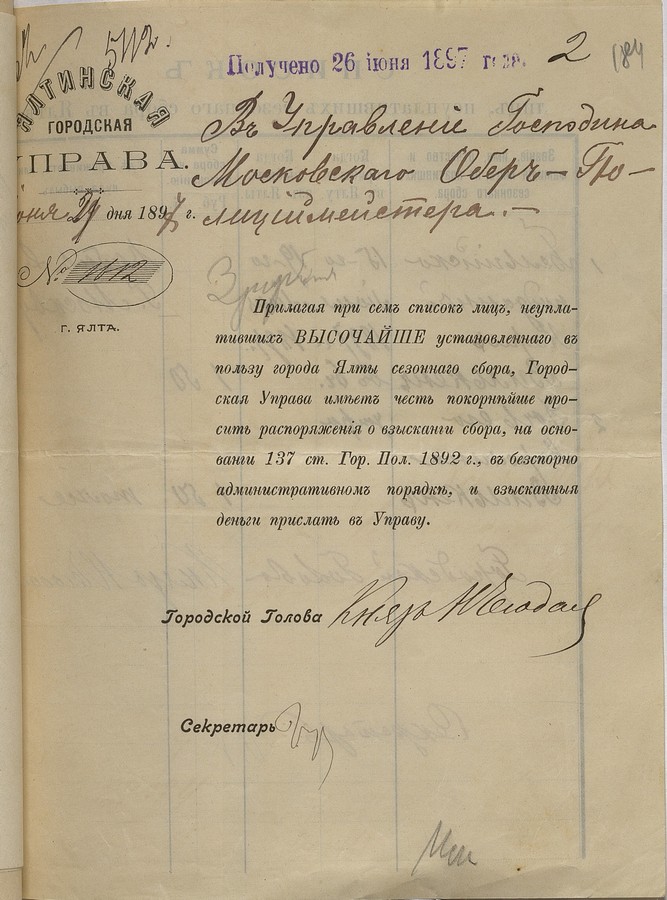 5112.
Получено 26 іюня 1897 года.
2
184
ЯЛТИНСКАЯ
ГОРОДСКАЯ
УПРАВА.
дня 1897 г.
№ 1612
Г. ЯЛТА.
Въ Управленіе Господина
Московскаго Оберъ-По-
лиціймейстера.—
Прилагая при семъ списокъ лицъ, неупла-
тившихъ ВЫСОЧАЙШЕ установленнаго въ
пользу города Ялты сезоннаго сбора, Город-
ская Управа имѣетъ честь покорнѣйше про-
сить распоряженія о взысканги сбора, на осно-
ванги 137 ст. Гор. Пол. 1892 г., въ безспорно
административномъ порядкѣ, и взысканныя
деньги прислать въ Управу.
Городской Голова Князь
Секретарь